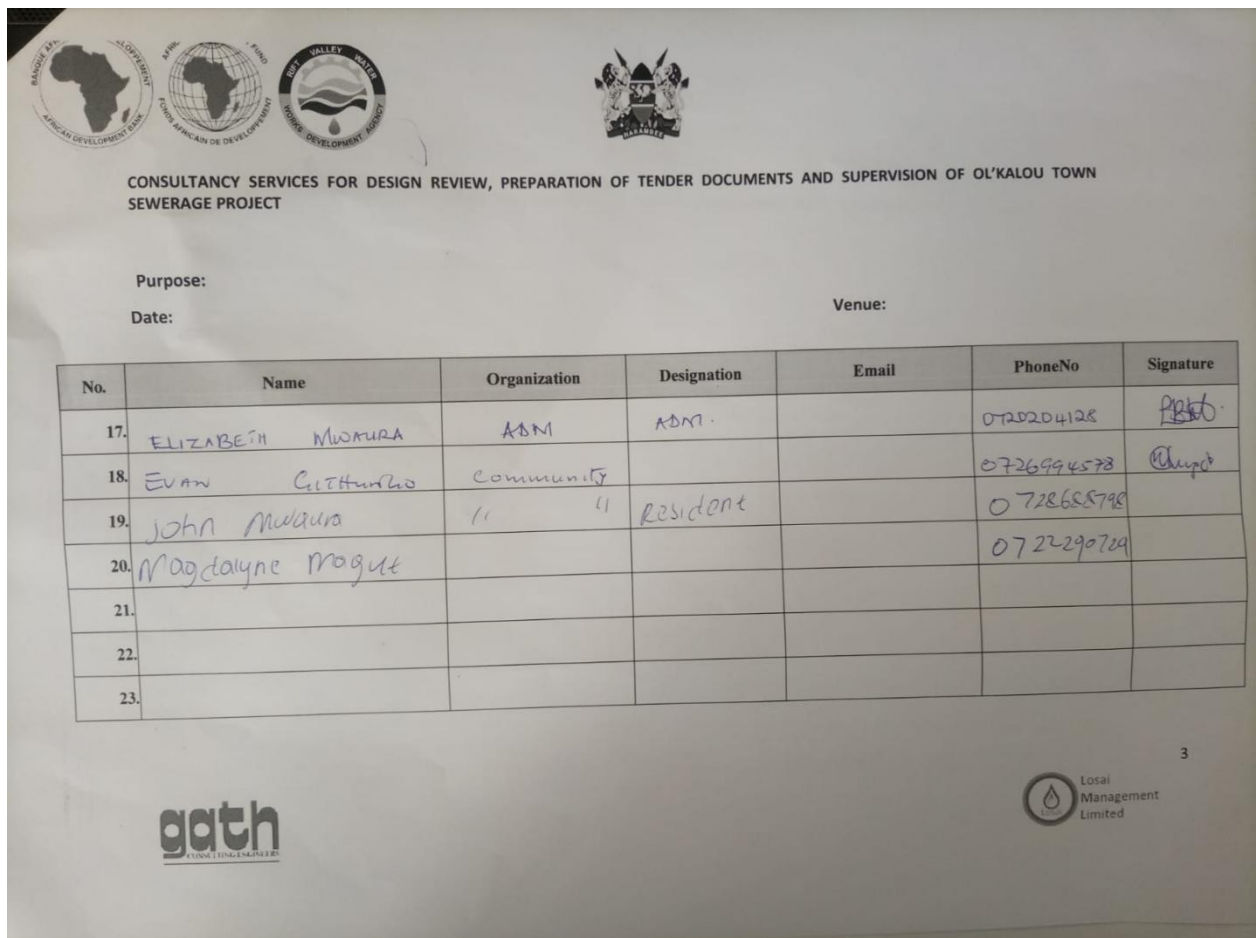 BANQUE AFRICAINE DE DEVELOPPEMENT
AFRICAN DEVELOPMENT BANK
FUND
FONDS AFRICAIN DE DEVELOPPEMENT
RIFT VALLEY WATER
WORKS DEVELOPMENT AGENCY
HARAMBEE
CONSULTANCY SERVICES FOR DESIGN REVIEW, PREPARATION OF TENDER DOCUMENTS AND SUPERVISION OF OL'KALOU TOWN
SEWERAGE PROJECT
Purpose:
Date: Venue:
No. Name Organization Designation Email PhoneNo Signature
17. ELIZABETH MWAURA ADM ADM. 0720204128
18. EVAN Community 0726994578
19. John Mwaura " " Resident 0728688798
20. Magdalyne Magut 0722290729
21.
22.
23.
3
gath
CONSULTING ENGINEERS
Losai
Management
Limited